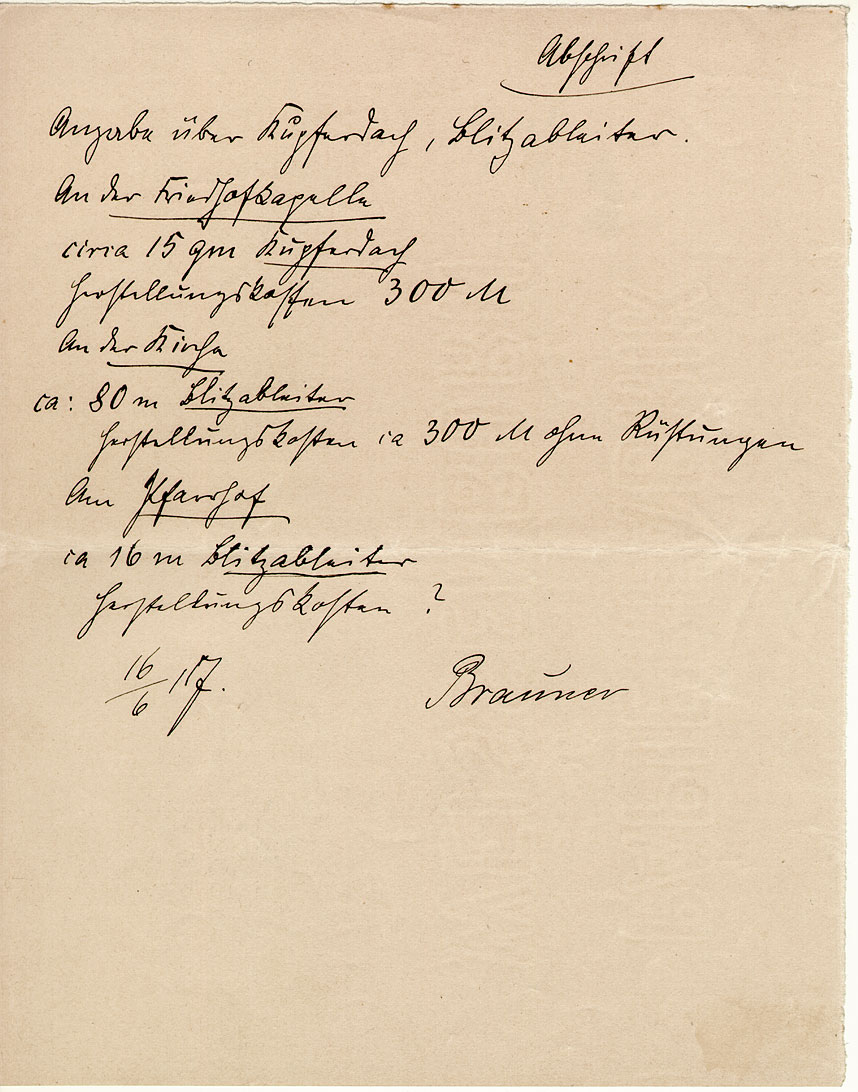 Abschrift
Angabe über Kupferdach, Blitzableiter.
An der Friedhofkapelle
circa 15 qm Kupferdach
Herstellungskosten 300 M
An der Kirche
ca: 80 m Blitzableiter
Herstellungskosten ca 300 M ohne Rüstungen
Am Pfarrhof
ca 16 m Blitzableiter
Herstellungskosten ?
16/6 17. Brauner